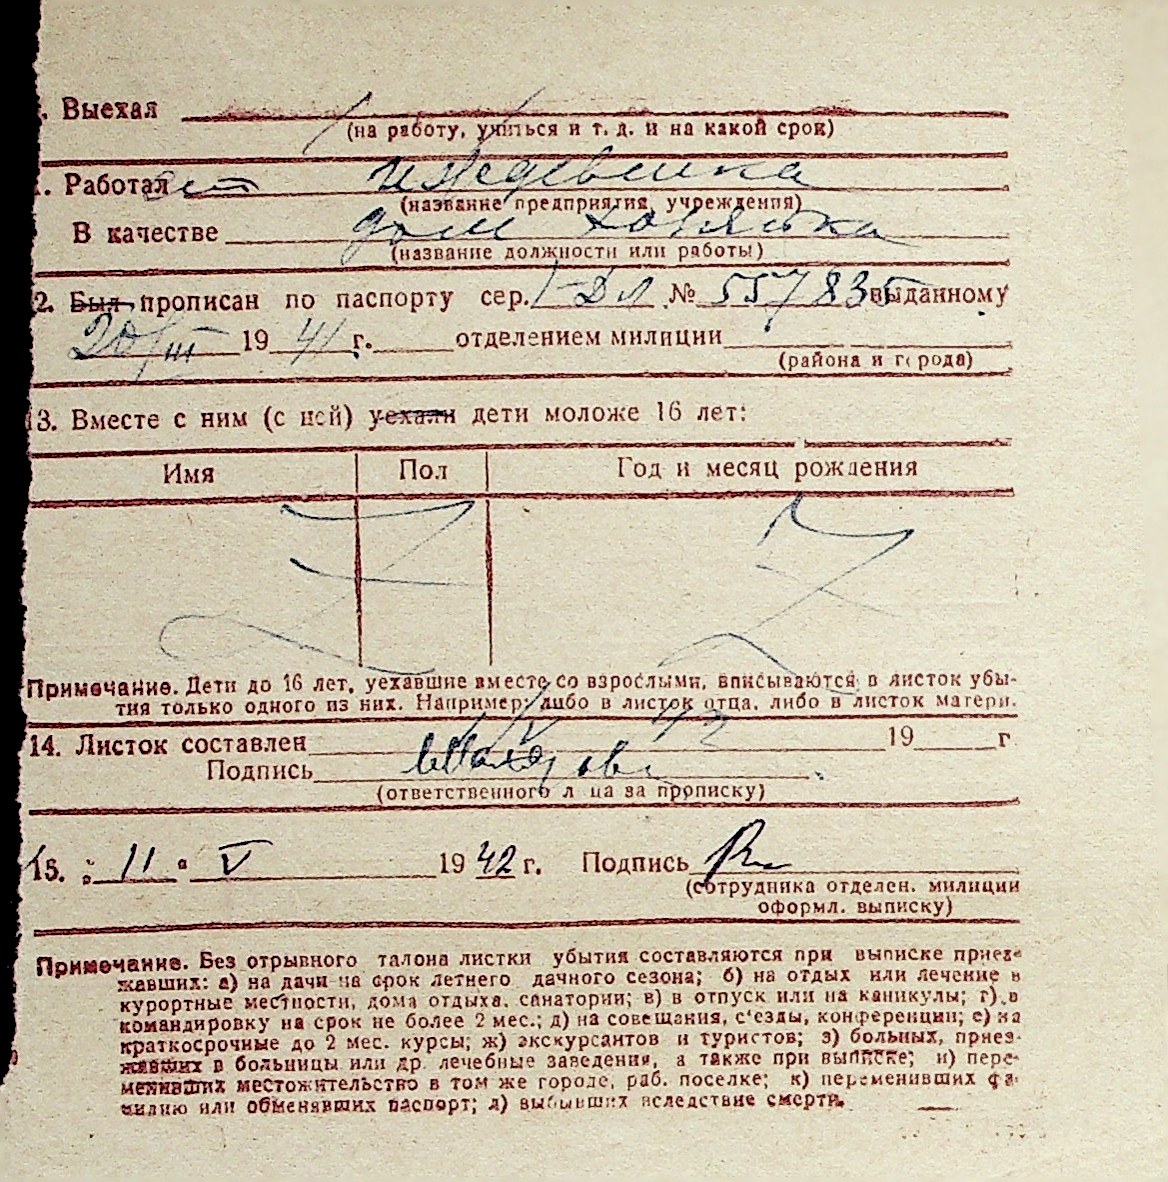 . Выехал
(на работу, учиться и т. д. и на какой срок)
. Работал иждевенка
(название предприятия, учреждения)
В качестве дом хозяйка
(название должности или работы)
2. Был прописан по паспорту сер. 1-ДЛ № 557835 выданному
20/III 1941 г. отделением милиции
(района и города)
13. Вместе с ним (с ней) уехали дети моложе 16 лет:
Имя Пол Год и месяц рождения
Примечание. Дети до 16 лет, уехавшие вместе со взрослыми, вписываются в листок убы-
тия только одного из них. Например: либо в листок отца, либо в листок матери.
14. Листок составлен 19 г
Подпись
(ответственного лица за прописку)
15. " 11 " V 1942 г. Подпись
(сотрудника отделен. милиции
оформл. выписку)
Примечание. Без отрывного талона листки убытия составляются при выписке приез-
жавших: а) на дачи на срок летнего дачного сезона; б) на отдых или лечение в
курортные местности, дома отдыха, санатории; в) в отпуск или на каникулы; г) в
командировку на срок не более 2 мес.; д) на совещания, с'езды, конференции; е) на
краткосрочные до 2 мес. курсы; ж) экскурсантов и туристов; з) больных, приез-
жавших в больницы или др. лечебные заведения, а также при выписке; и) пере-
менивших местожительство в том же городе, раб. поселке; к) переменивших фа-
милию или обменявших паспорт; л) выбывших вследствие смерти.